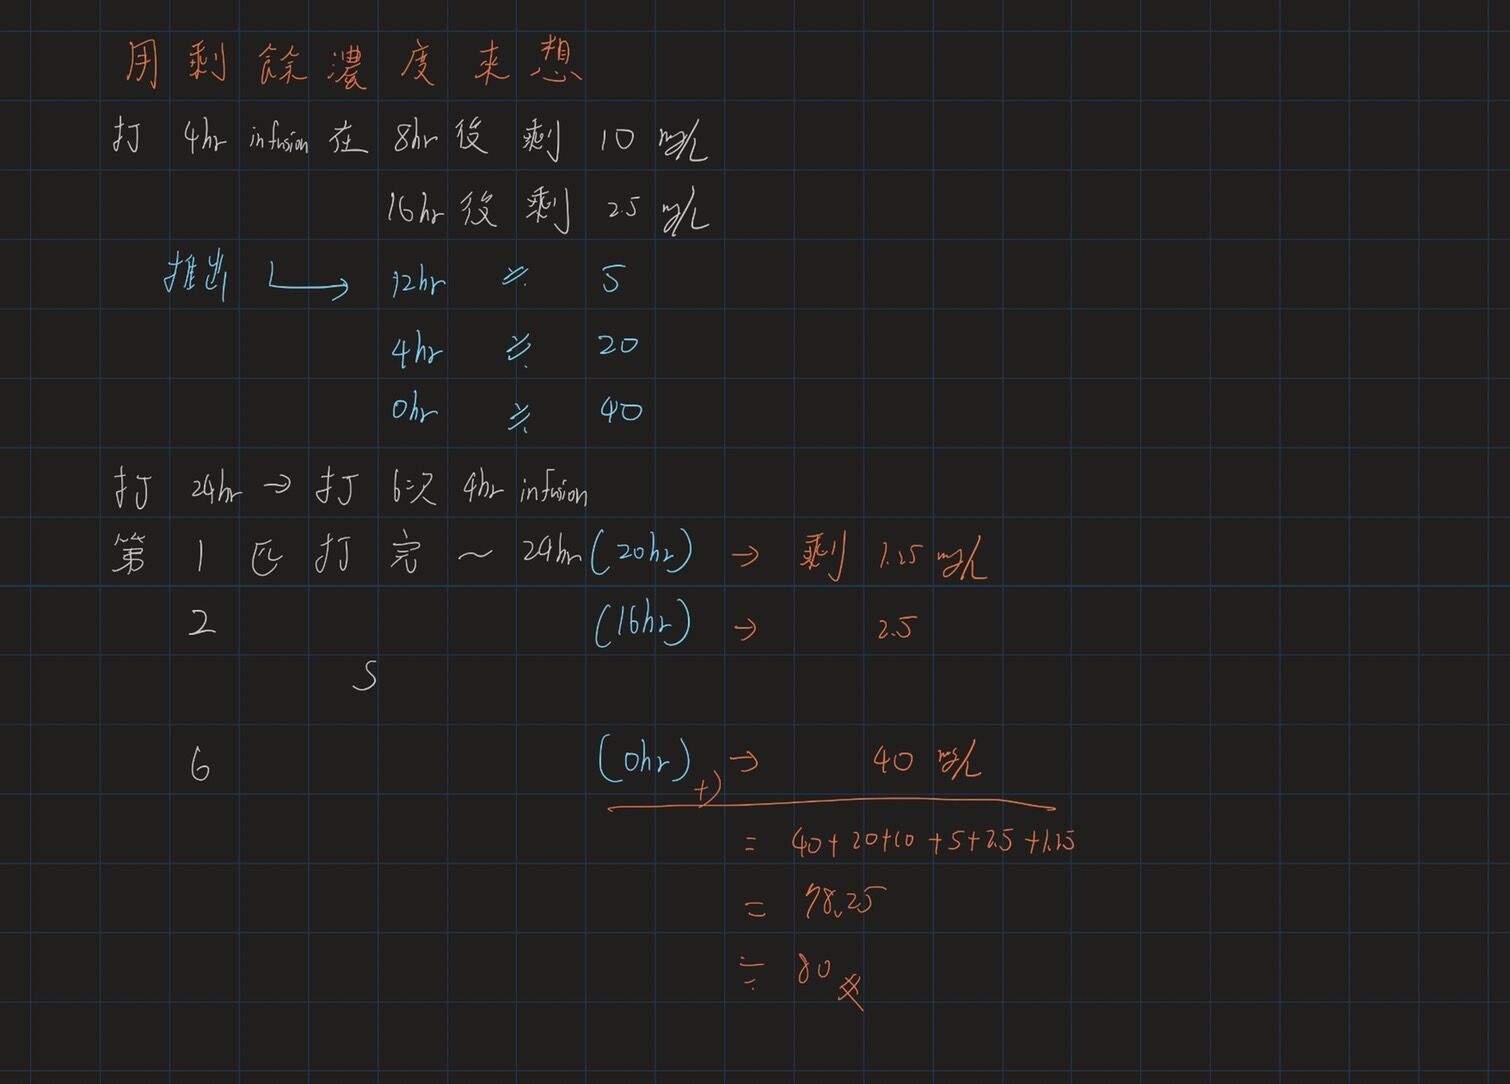 用剩餘濃度來想
打 4hr infusion 在 8hr 後 剩 10 mg/L
16hr 後 剩 2.5 mg/L
推出 ↳ 12hr 〃 5
4hr 〃 20
0hr 〃 40
打 24hr → 打 6次 4hr infusion
第 1 匹 打 完 ~ 24hr (20hr) → 剩 1.25 mg/L
2 (16hr) → 2.5
S
6 (0hr) +) → 40 mg/L
= 40+20+10+5+2.5+1.25
= 78.25
≒ 80